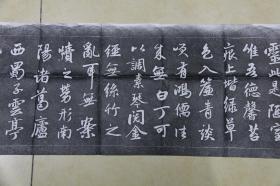 靈是陋室
惟吾德馨苔
痕上堦緑草
色入簾青談
笑有鴻儒往
来無白丁可
以調素琴閱金
經無絲竹之
亂耳無案
牘之勞形南
陽諸葛廬
西蜀子雲亭